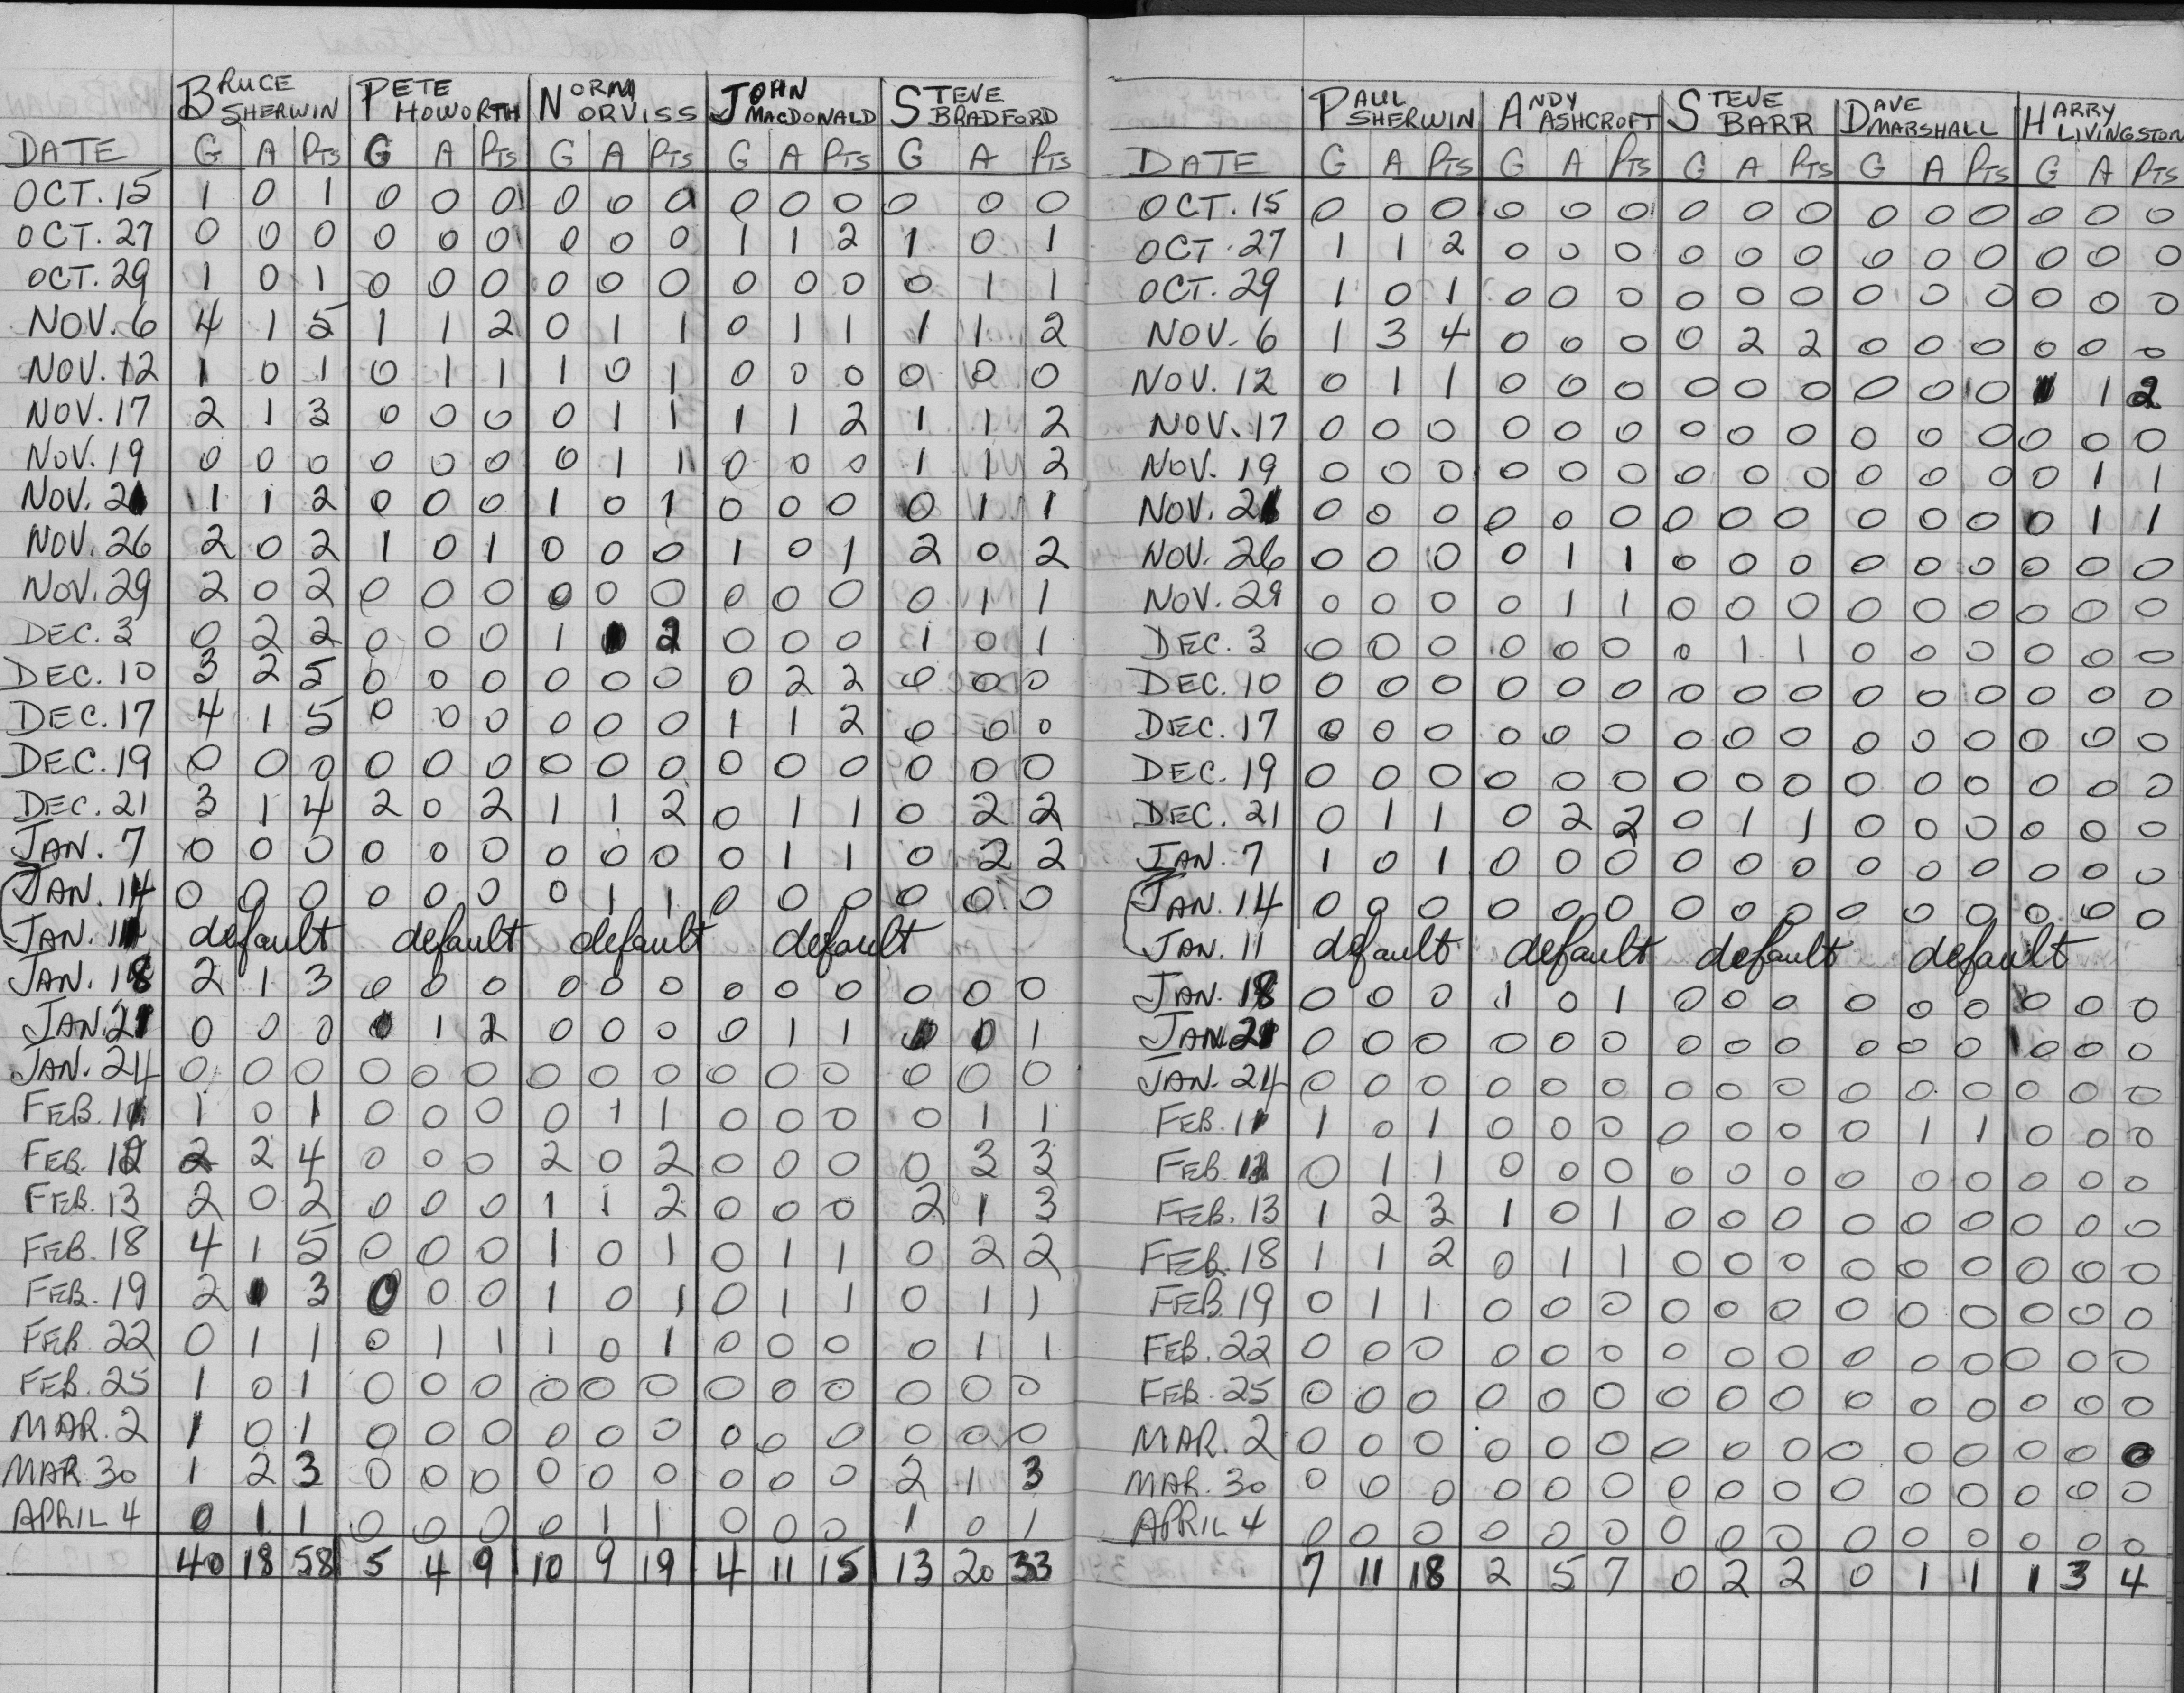 BRUCE SHERWIN PETE HOWORTH NORM ORVISS JOHN MACDONALD STEVE BRADFORD
DATE G A PTS G A PTS G A PTS G A PTS G A PTS
OCT. 15 1 0 1 0 0 0 0 0 0 0 0 0 0 0 0
OCT. 27 0 0 0 0 0 0 0 0 0 1 1 2 1 0 1
OCT. 29 1 0 1 0 0 0 0 0 0 0 0 0 0 1 1
NOV. 6 4 1 5 1 1 2 0 1 1 0 1 1 1 1 2
NOV. 12 1 0 1 0 1 1 1 0 1 0 0 0 0 0 0
NOV. 17 2 1 3 0 0 0 0 1 1 1 1 2 1 1 2
NOV. 19 0 0 0 0 0 0 0 1 1 0 0 0 1 1 2
NOV. 21 1 1 2 0 0 0 1 0 1 0 0 0 0 1 1
NOV. 26 2 0 2 1 0 1 0 0 0 1 0 1 2 0 2
NOV. 29 2 0 2 0 0 0 0 0 0 0 0 0 0 1 1
DEC. 3 0 2 2 0 0 0 1 1 2 0 0 0 1 0 1
DEC. 10 3 2 5 0 0 0 0 0 0 0 2 2 0 0 0
DEC. 17 4 1 5 0 0 0 0 0 0 1 1 2 0 0 0
DEC. 19 0 0 0 0 0 0 0 0 0 0 0 0 0 0 0
DEC. 21 3 1 4 2 0 2 1 1 2 0 1 1 0 2 2
JAN. 7 0 0 0 0 0 0 0 0 0 0 1 1 0 2 2
JAN. 14 0 0 0 0 0 0 0 1 1 0 0 0 0 0 0
JAN. 11 default default default default
JAN. 18 2 1 3 0 0 0 0 0 0 0 0 0 0 0 0
JAN. 21 0 0 0 1 1 2 0 0 0 0 1 1 1 0 1
JAN. 24 0 0 0 0 0 0 0 0 0 0 0 0 0 0 0
FEB. 11 1 0 1 0 0 0 0 1 1 0 0 0 0 1 1
FEB. 12 2 2 4 0 0 0 2 0 2 0 0 0 0 3 3
FEB. 13 2 0 2 0 0 0 1 1 2 0 0 0 2 1 3
FEB. 18 4 1 5 0 0 0 1 0 1 0 1 1 0 2 2
FEB. 19 2 1 3 0 0 0 1 0 1 0 1 1 0 1 1
FEB. 22 0 1 1 0 1 1 1 0 1 0 0 0 0 1 1
FEB. 25 1 0 1 0 0 0 0 0 0 0 0 0 0 0 0
MAR. 2 1 0 1 0 0 0 0 0 0 0 0 0 0 0 0
MAR. 30 1 2 3 0 0 0 0 0 0 0 0 0 2 1 3
APRIL 4 0 1 1 0 0 0 0 1 1 0 0 0 1 0 1
40 18 58 5 4 9 10 9 19 4 11 15 13 20 33
PAUL SHERWIN ANDY ASHCROFT STEVE BARR DAVE MARSHALL HARRY LIVINGSTON
DATE G A PTS G A PTS G A PTS G A PTS G A PTS
OCT. 15 0 0 0 0 0 0 0 0 0 0 0 0 0 0 0
OCT. 27 1 1 2 0 0 0 0 0 0 0 0 0 0 0 0
OCT. 29 1 0 1 0 0 0 0 0 0 0 0 0 0 0 0
NOV. 6 1 3 4 0 0 0 0 2 2 0 0 0 0 0 0
NOV. 12 0 1 1 0 0 0 0 0 0 0 0 0 1 1 2
NOV. 17 0 0 0 0 0 0 0 0 0 0 0 0 0 0 0
NOV. 19 0 0 0 0 0 0 0 0 0 0 0 0 0 1 1
NOV. 21 0 0 0 0 0 0 0 0 0 0 0 0 0 1 1
NOV. 26 0 0 0 0 1 1 0 0 0 0 0 0 0 0 0
NOV. 29 0 0 0 0 1 1 0 0 0 0 0 0 0 0 0
DEC. 3 0 0 0 0 0 0 0 1 1 0 0 0 0 0 0
DEC. 10 0 0 0 0 0 0 0 0 0 0 0 0 0 0 0
DEC. 17 0 0 0 0 0 0 0 0 0 0 0 0 0 0 0
DEC. 19 0 0 0 0 0 0 0 0 0 0 0 0 0 0 0
DEC. 21 0 1 1 0 2 2 0 1 1 0 0 0 0 0 0
JAN. 7 1 0 1 0 0 0 0 0 0 0 0 0 0 0 0
JAN. 14 0 0 0 0 0 0 0 0 0 0 0 0 0 0 0
JAN. 11 default default default default
JAN. 18 0 0 0 1 0 1 0 0 0 0 0 0 0 0 0
JAN. 21 0 0 0 0 0 0 0 0 0 0 0 0 0 0 0
JAN. 24 0 0 0 0 0 0 0 0 0 0 0 0 0 0 0
FEB. 11 1 0 1 0 0 0 0 0 0 0 1 1 0 0 0
FEB. 12 0 1 1 0 0 0 0 0 0 0 0 0 0 0 0
FEB. 13 1 2 3 1 0 1 0 0 0 0 0 0 0 0 0
FEB. 18 1 1 2 0 1 1 0 0 0 0 0 0 0 0 0
FEB. 19 0 1 1 0 0 0 0 0 0 0 0 0 0 0 0
FEB. 22 0 0 0 0 0 0 0 0 0 0 0 0 0 0 0
FEB. 25 0 0 0 0 0 0 0 0 0 0 0 0 0 0 0
MAR. 2 0 0 0 0 0 0 0 0 0 0 0 0 0 0 0
MAR. 30 0 0 0 0 0 0 0 0 0 0 0 0 0 0 0
APRIL 4 0 0 0 0 0 0 0 0 0 0 0 0 0 0 0
7 11 18 2 5 7 0 2 2 0 1 1 1 3 4